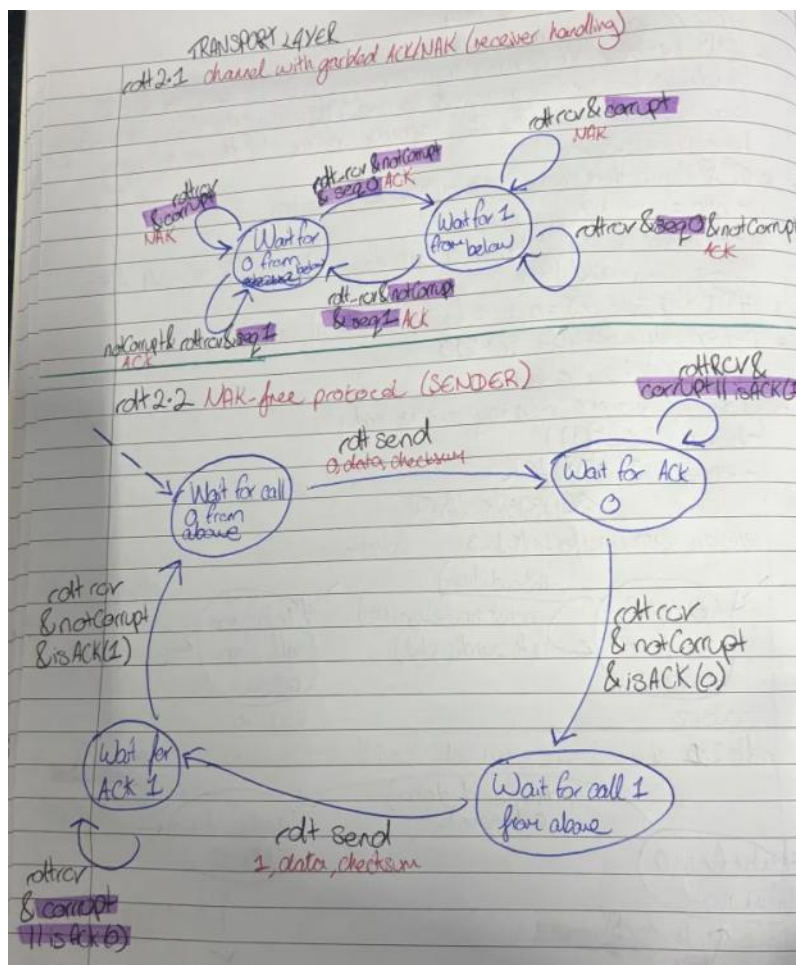 TRANSPORT LAYER
rdt 2.1 channel with garbled ACK/NAK (receiver handling)
rdt rcv & corrupt
NAK
rdt_rcv & notCorrupt
& seq0 ACK
rdt rcv
& corrupt
NAK
Wait for
0 from
below
Wait for 1
from below
rdt rcv & seq0 & notCorrupt
ACK
rdt_rcv & notCorrupt
& seq1 ACK
notCorrupt & rdt rcv & seq 1
ACK
rdt 2.2 NAK-free protocol (SENDER)
rdt RCV &
corrupt || isACK(1
rdt send
0, data, checksum
Wait for call
0 from
above
Wait for ACK
0
rdt rcv
& notCorrupt
& isACK(1)
rdt rcv
& notCorrupt
& isACK(0)
Wait for
ACK 1
Wait for call 1
from above
rdt send
1, data, checksum
rdt rcv
& corrupt
|| isAck(0)